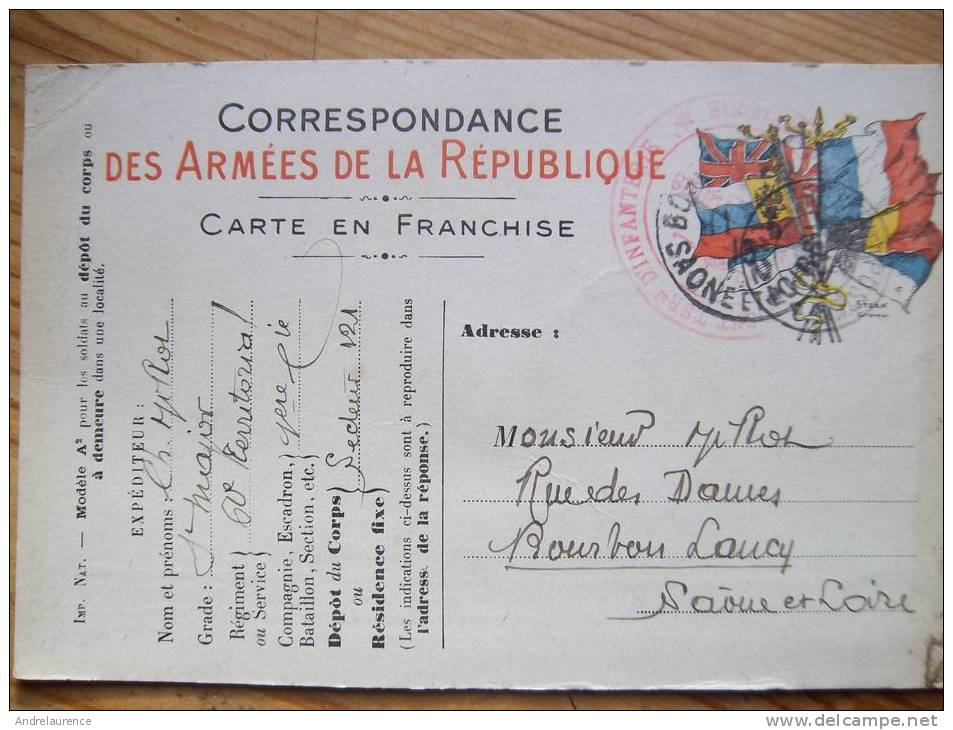 CORRESPONDANCE
DES ARMÉES DE LA RÉPUBLIQUE
CARTE EN FRANCHISE
IMP. NAT. — Modèle A² pour les soldats au dépôt du corps ou
à demeure dans une localité.
EXPÉDITEUR :
Nom et prénoms : Ch.
Grade : St major
Régiment
ou Service } 60e Territorial
Compagnie, Escadron,
Bataillon, Section, etc. } Cie
Dépôt du Corps
ou
Résidence fixe } Secteur 121
(Les indications ci-dessus sont à reproduire dans
l'adresse de la réponse.)
D'INFANTERIE
SAONE ET LOIRE
STERN
Graveur
Adresse :
Monsieur
Rue des Dames
Bourbon Lancy
Saône et Loire
Andrelaurence
www.delcampe.net